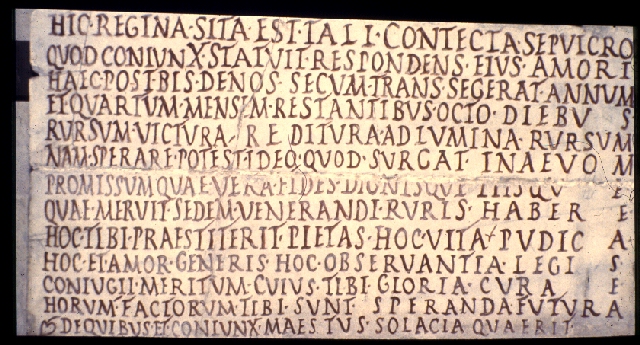 HIC·REGINA·SITA·EST·TALI·CONTECTA·SEPVLCRO
QVOD CONIVNX·STATVIT·RESPONDENS·EIVS·AMORI
HAEC·POST·BIS·DENOS·SECVM·TRANS·SEGERAT·ANNVM
ET·QVARTVM·MENSEM·RESTANTIBVS·OCTO·DIEBVS
RVRSVM·VICTVRA·REDITVRA·AD·LVMINA·RVRSVM
NAM·SPERARE·POTEST·IDEO·QVOD·SVRGAT IN AEVOM
PROMISSVM QVAE·VERA·FIDES·DIGNISQVE PIISQVE
QVAE·MERVIT·SEDEM·VENERANDI·RVRIS·HABERE
HOC·TIBI·PRAESTITERIT·PIETAS·HOC·VITA·PVDICA
HOC·ET·AMOR·GENERIS·HOC·OBSERVANTIA·LEGIS
CONIVGII·MERITVM·CVIVS·TIBI·GLORIA·CVRAE
HORVM·FACTORVM·TIBI·SVNT·SPERANDA·FVTVRA
DE QVIBVS·ET·CONIVNX·MAESTVS·SOLACIA QVAERIT